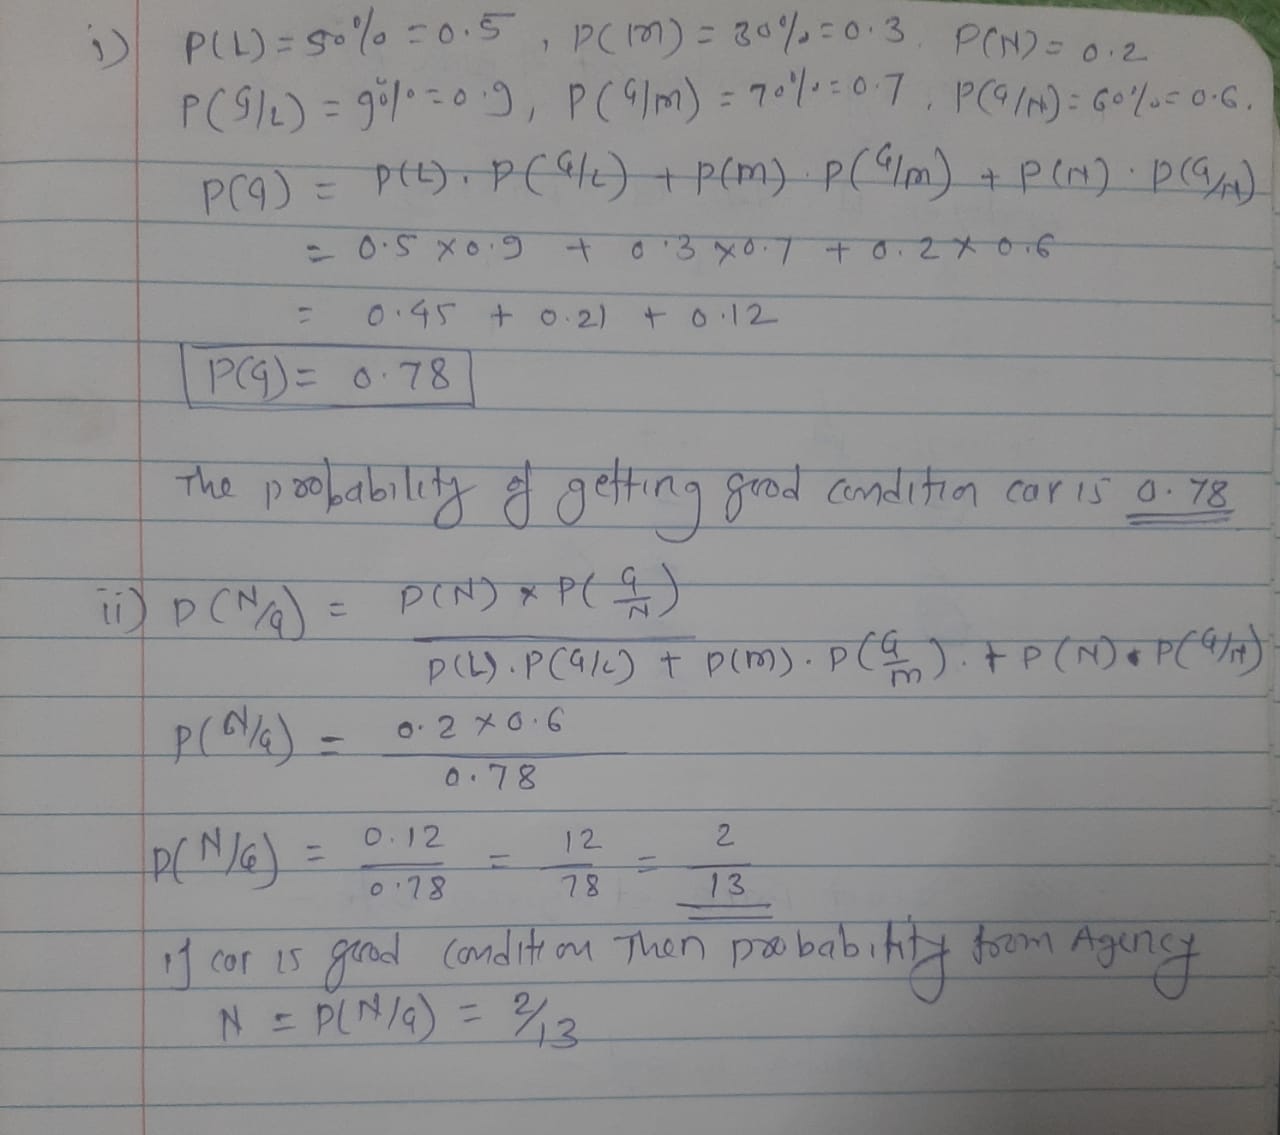 i) P(L) = 50% = 0.5 , P(m) = 30% = 0.3 P(N) = 0.2
P(G/L) = 90% = 0.9, P(G/m) = 70% = 0.7 , P(G/N) = 60% = 0.6.
P(G) = P(L). P(G/L) + P(m). P(G/m) + P(N). P(G/N)
= 0.5 x 0.9 + 0.3 x 0.7 + 0.2 x 0.6
= 0.45 + 0.21 + 0.12
P(G) = 0.78
The probability of getting good condition car is 0.78
ii) P(N/G) = P(N) x P(G/N)
P(L). P(G/L) + P(m). P(G/m). + P(N) • P(G/N)
P(N/G) = 0.2 x 0.6
0.78
P(N/G) = 0.12 = 12 = 2
0.78 78 13
if car is good condition Then probability from Agency
N = P(N/G) = 2/13